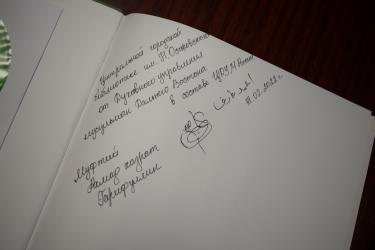 Центральной городской
библиотеке им. Н. Островского
от Духовного управления
мусульман Дальнего Востока
в составе ЦРУМ
18.02.2022г.
Муфтий
Хазрат
Гарифуллин